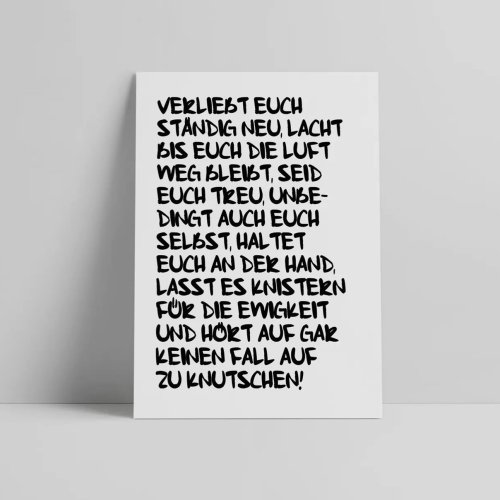 VERLIEBT EUCH
STÄNDIG NEU, LACHT
BIS EUCH DIE LUFT
WEG BLEIBT, SEID
EUCH TREU, UNBE-
DINGT AUCH EUCH
SELBST, HALTET
EUCH AN DER HAND,
LASST ES KNISTERN
FÜR DIE EWIGKEIT
UND HÖRT AUF GAR
KEINEN FALL AUF
ZU KNUTSCHEN!